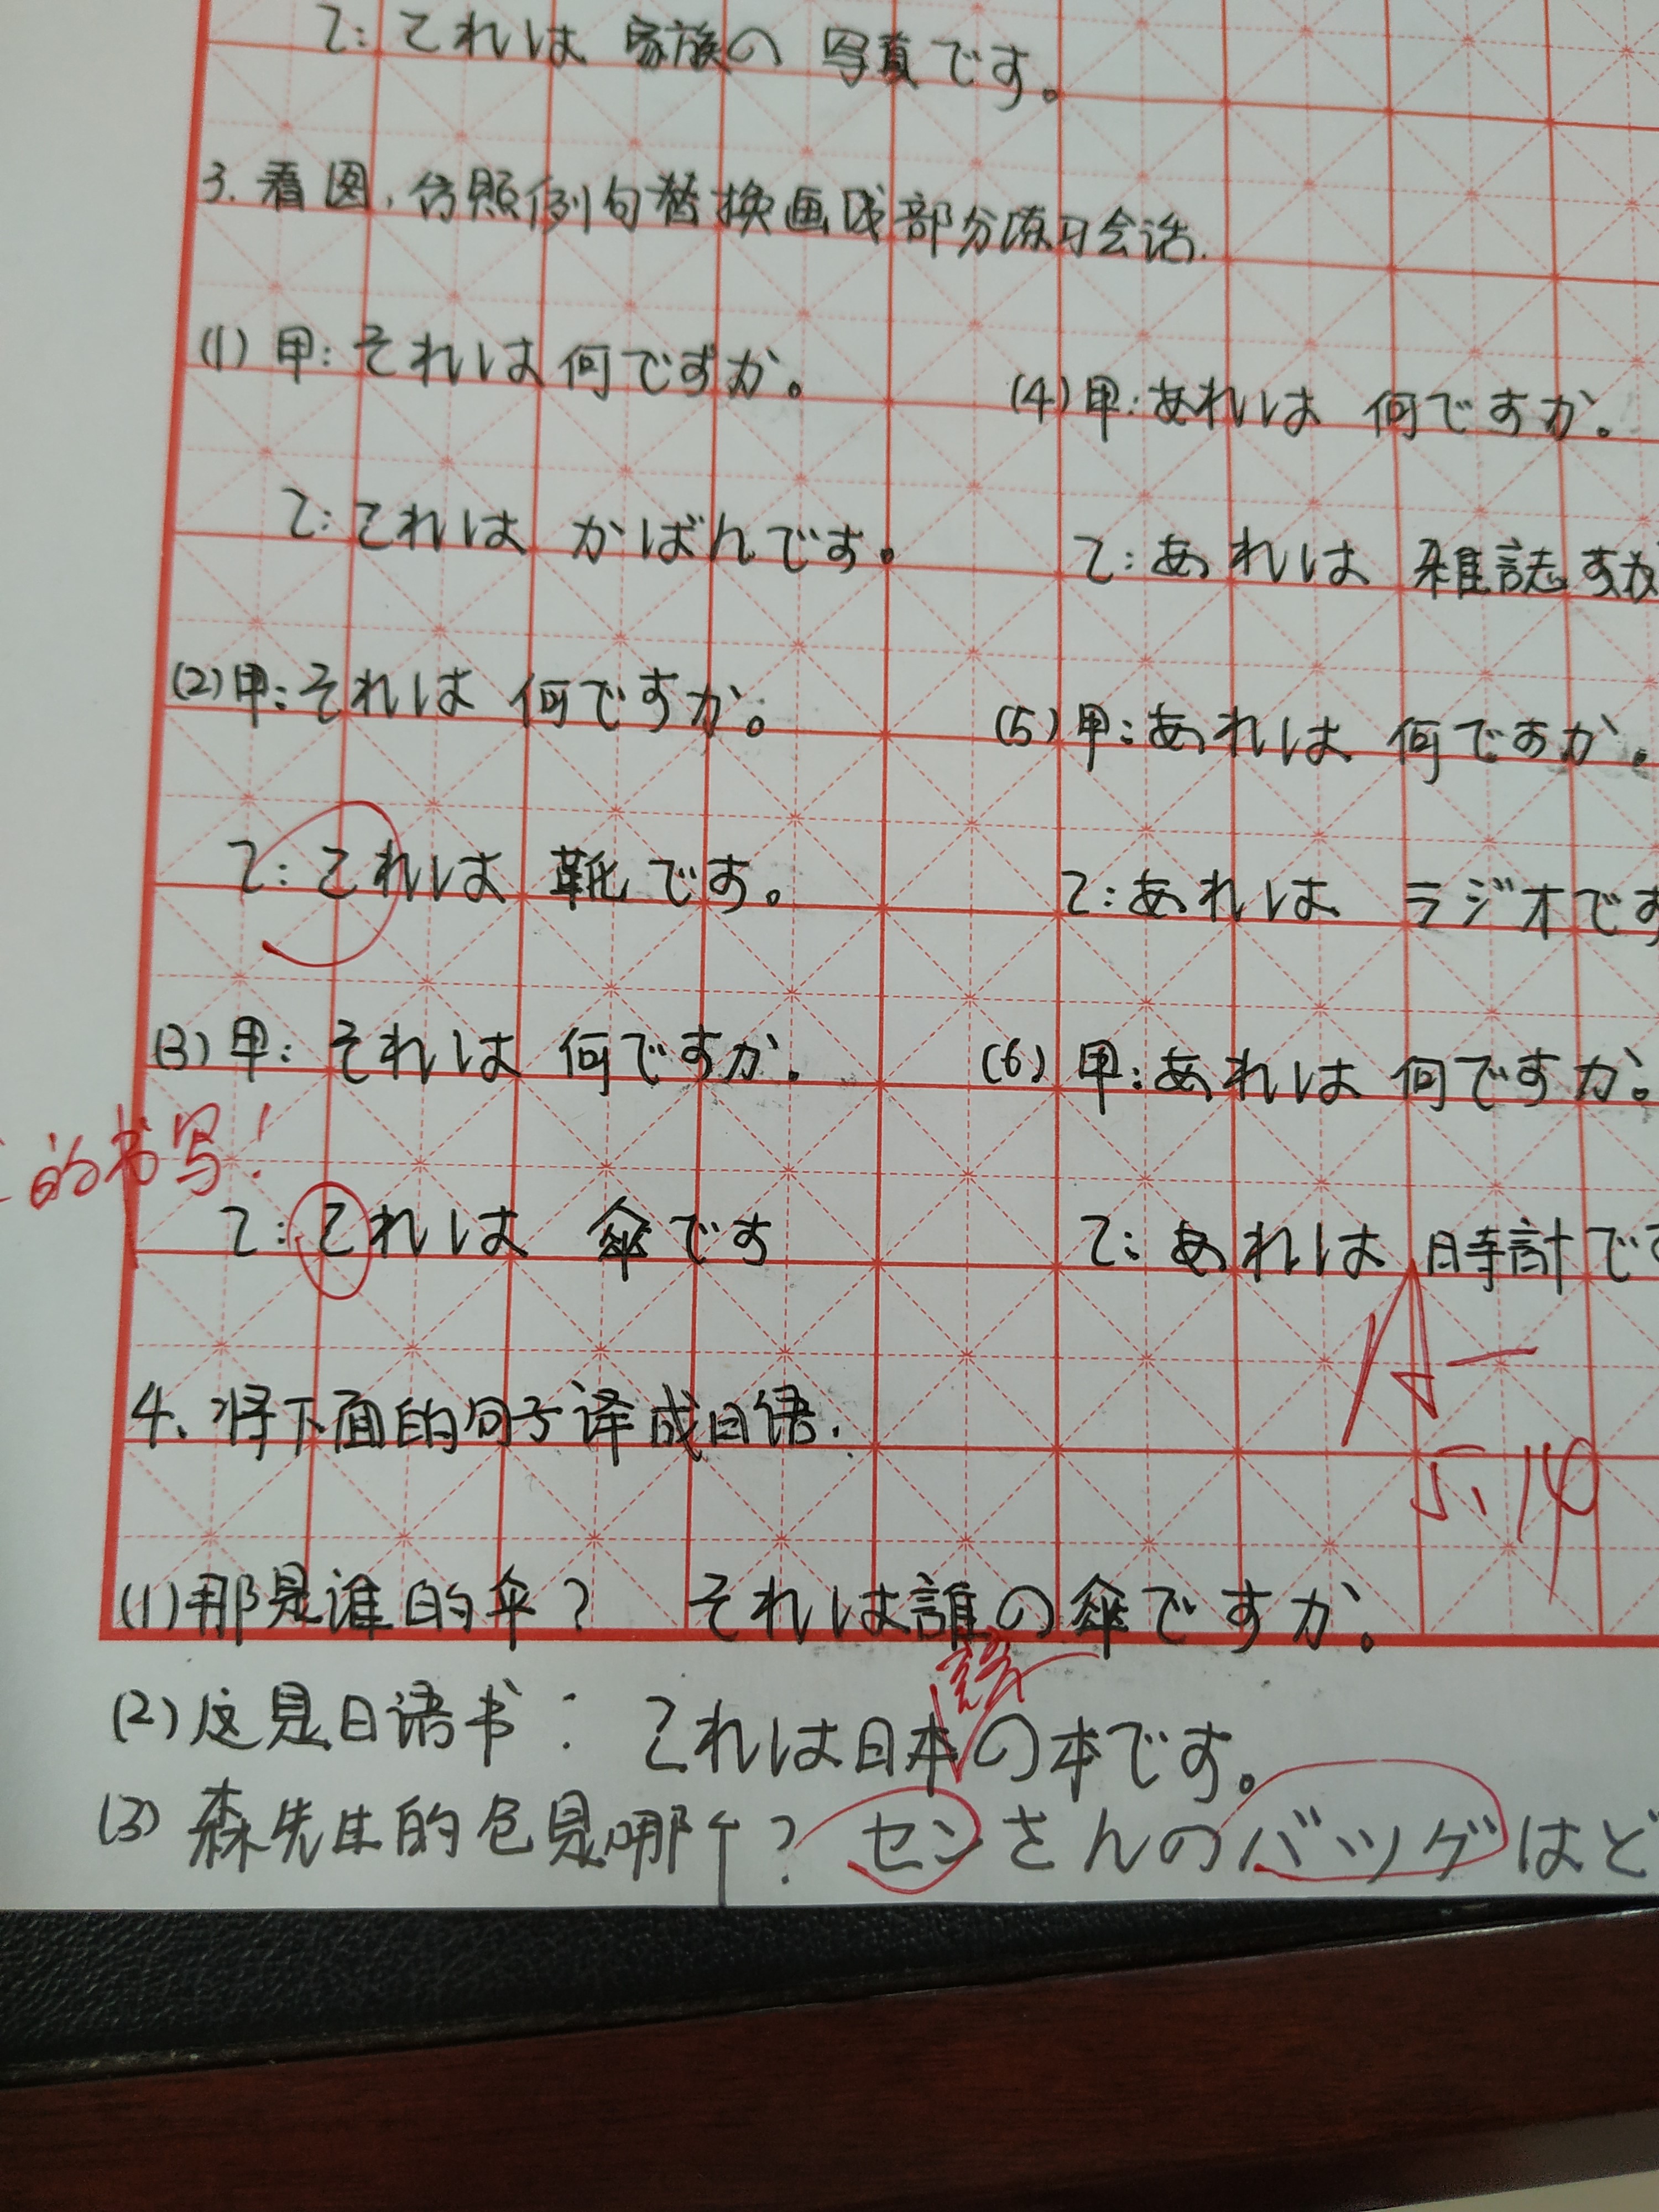 乙:これは 家族の 写真です。
3.看图,仿照例句替换画线部分练习会话.
(1)甲:それは何ですか。
乙:これは かばんです。
(2)甲:それは 何ですか。
乙:これは 靴です。
(3)甲:それは 何ですか.
的书写!
乙:これは 傘です
(4)甲:あれは 何ですか。
乙:あれは 雑誌
(5)甲:あれは 何ですか。
乙:あれは ラジオです
(6)甲:あれは 何ですか。
乙:あれは 時計で
A-
5.14
4、将下面的句子译成日语.
(1)那是谁的伞? それは誰の傘ですか。
語
(2)这是日语书: これは日本の本です。
(3)森先生的包是哪个? センさんのバッグはど